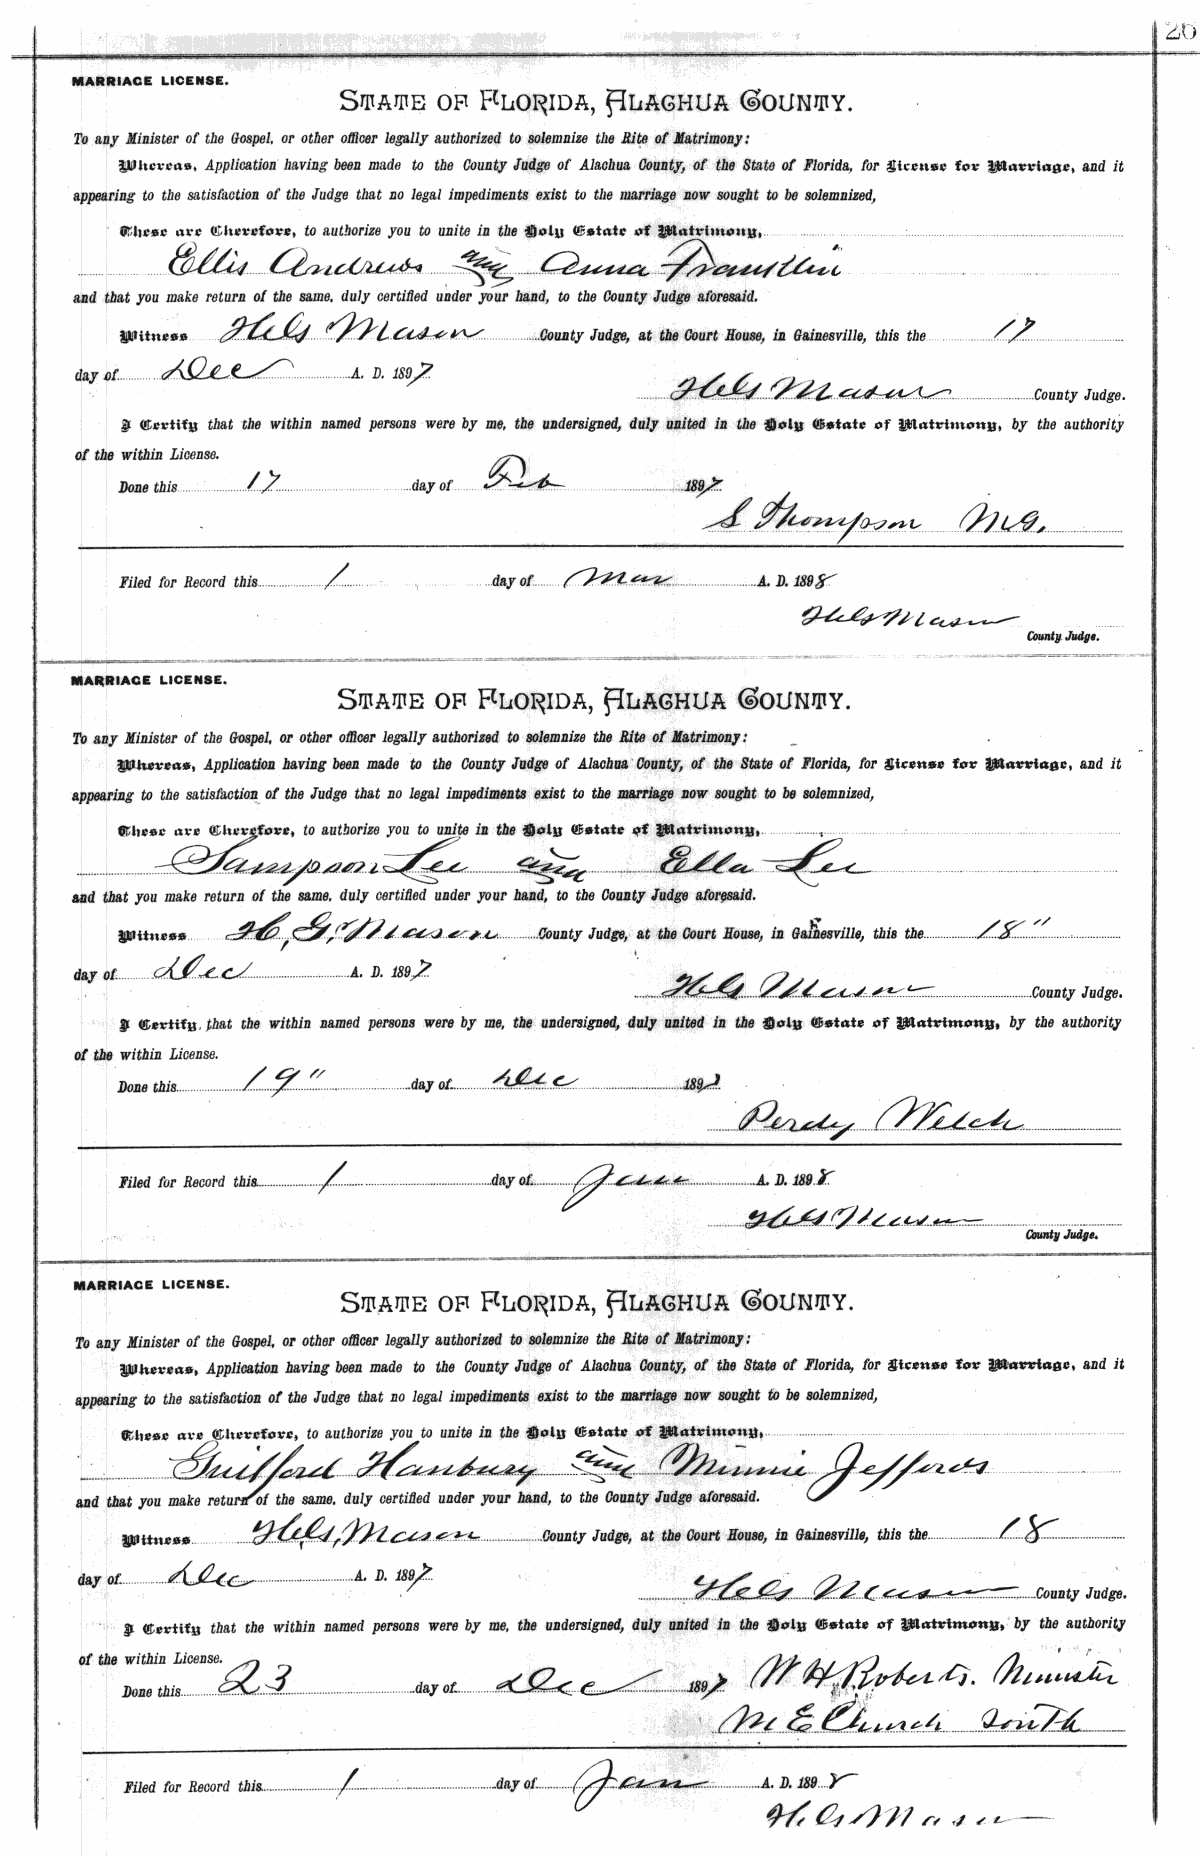 26
MARRIAGE LICENSE.
STATE OF FLORIDA, ALACHUA COUNTY.
To any Minister of the Gospel, or other officer legally authorized to solemnize the Rite of Matrimony:
Whereas, Application having been made to the County Judge of Alachua County, of the State of Florida, for License for Marriage, and it
appearing to the satisfaction of the Judge that no legal impediments exist to the marriage now sought to be solemnized,
These are Therefore, to authorize you to unite in the Holy Estate of Matrimony,
Ellis Andrews and Anna Franklin
and that you make return of the same, duly certified under your hand, to the County Judge aforesaid.
Witness H.G. Mason County Judge, at the Court House, in Gainesville, this the 17
day of Dec A. D. 1897
H.G. Mason County Judge.
I Certify that the within named persons were by me, the undersigned, duly united in the Holy Estate of Matrimony, by the authority
of the within License.
Done this 17 day of Feb 1897
S Thompson M.G.
Filed for Record this 1 day of Mar A. D. 1898
H.G. Mason
County Judge.
MARRIAGE LICENSE.
STATE OF FLORIDA, ALACHUA COUNTY.
To any Minister of the Gospel, or other officer legally authorized to solemnize the Rite of Matrimony:
Whereas, Application having been made to the County Judge of Alachua County, of the State of Florida, for License for Marriage, and it
appearing to the satisfaction of the Judge that no legal impediments exist to the marriage now sought to be solemnized,
These are Therefore, to authorize you to unite in the Holy Estate of Matrimony,
Sampson Lee and Ella Lee
and that you make return of the same, duly certified under your hand, to the County Judge aforesaid.
Witness H. G. Mason County Judge, at the Court House, in Gainesville, this the 18"
day of Dec A. D. 1897
H.G. Mason County Judge.
I Certify that the within named persons were by me, the undersigned, duly united in the Holy Estate of Matrimony, by the authority
of the within License.
Done this 19" day of Dec 189
Perdy Welch
Filed for Record this 1 day of Jan A. D. 1898
H.G. Mason
County Judge.
MARRIAGE LICENSE.
STATE OF FLORIDA, ALACHUA COUNTY.
To any Minister of the Gospel, or other officer legally authorized to solemnize the Rite of Matrimony:
Whereas, Application having been made to the County Judge of Alachua County, of the State of Florida, for License for Marriage, and it
appearing to the satisfaction of the Judge that no legal impediments exist to the marriage now sought to be solemnized,
These are Therefore, to authorize you to unite in the Holy Estate of Matrimony,
Guilford Hanbury and Minnie Jeffords
and that you make return of the same, duly certified under your hand, to the County Judge aforesaid.
Witness H.G. Mason County Judge, at the Court House, in Gainesville, this the 18
day of Dec A. D. 1897
H.G. Mason County Judge.
I Certify that the within named persons were by me, the undersigned, duly united in the Holy Estate of Matrimony, by the authority
of the within License.
Done this 23 day of Dec 1897 W H Roberts. Minister
M E Church South
Filed for Record this 1 day of Jan A. D. 1898
H.G. Mason